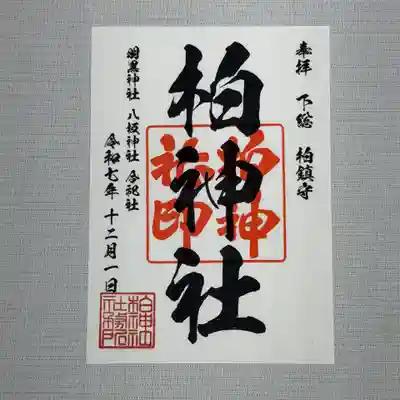 奉拝 下総 柏鎮守
柏神社
柏神
社印
羽黒神社 八坂神社 合祀社
令和七年 十二月一日